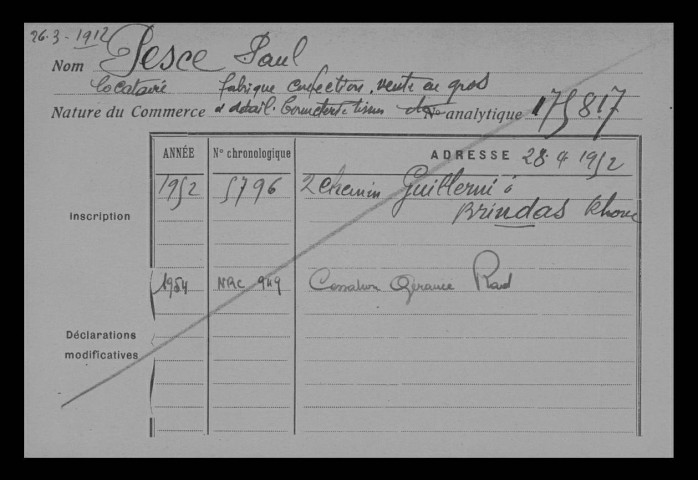 26.3-1912 Pesce Paul
Nom
locataire fabrique confection, vente en gros
Nature du Commerce & détail. Bonneterie tissus N° analytique 175817
ANNÉE N° chronologique ADRESSE 28 4 1952
Inscription 1952 5796 2 chemin Guillermi à
Brindas Rhone
1954 NRC 949 Cessation Gérance Rad
Déclarations
modificatives